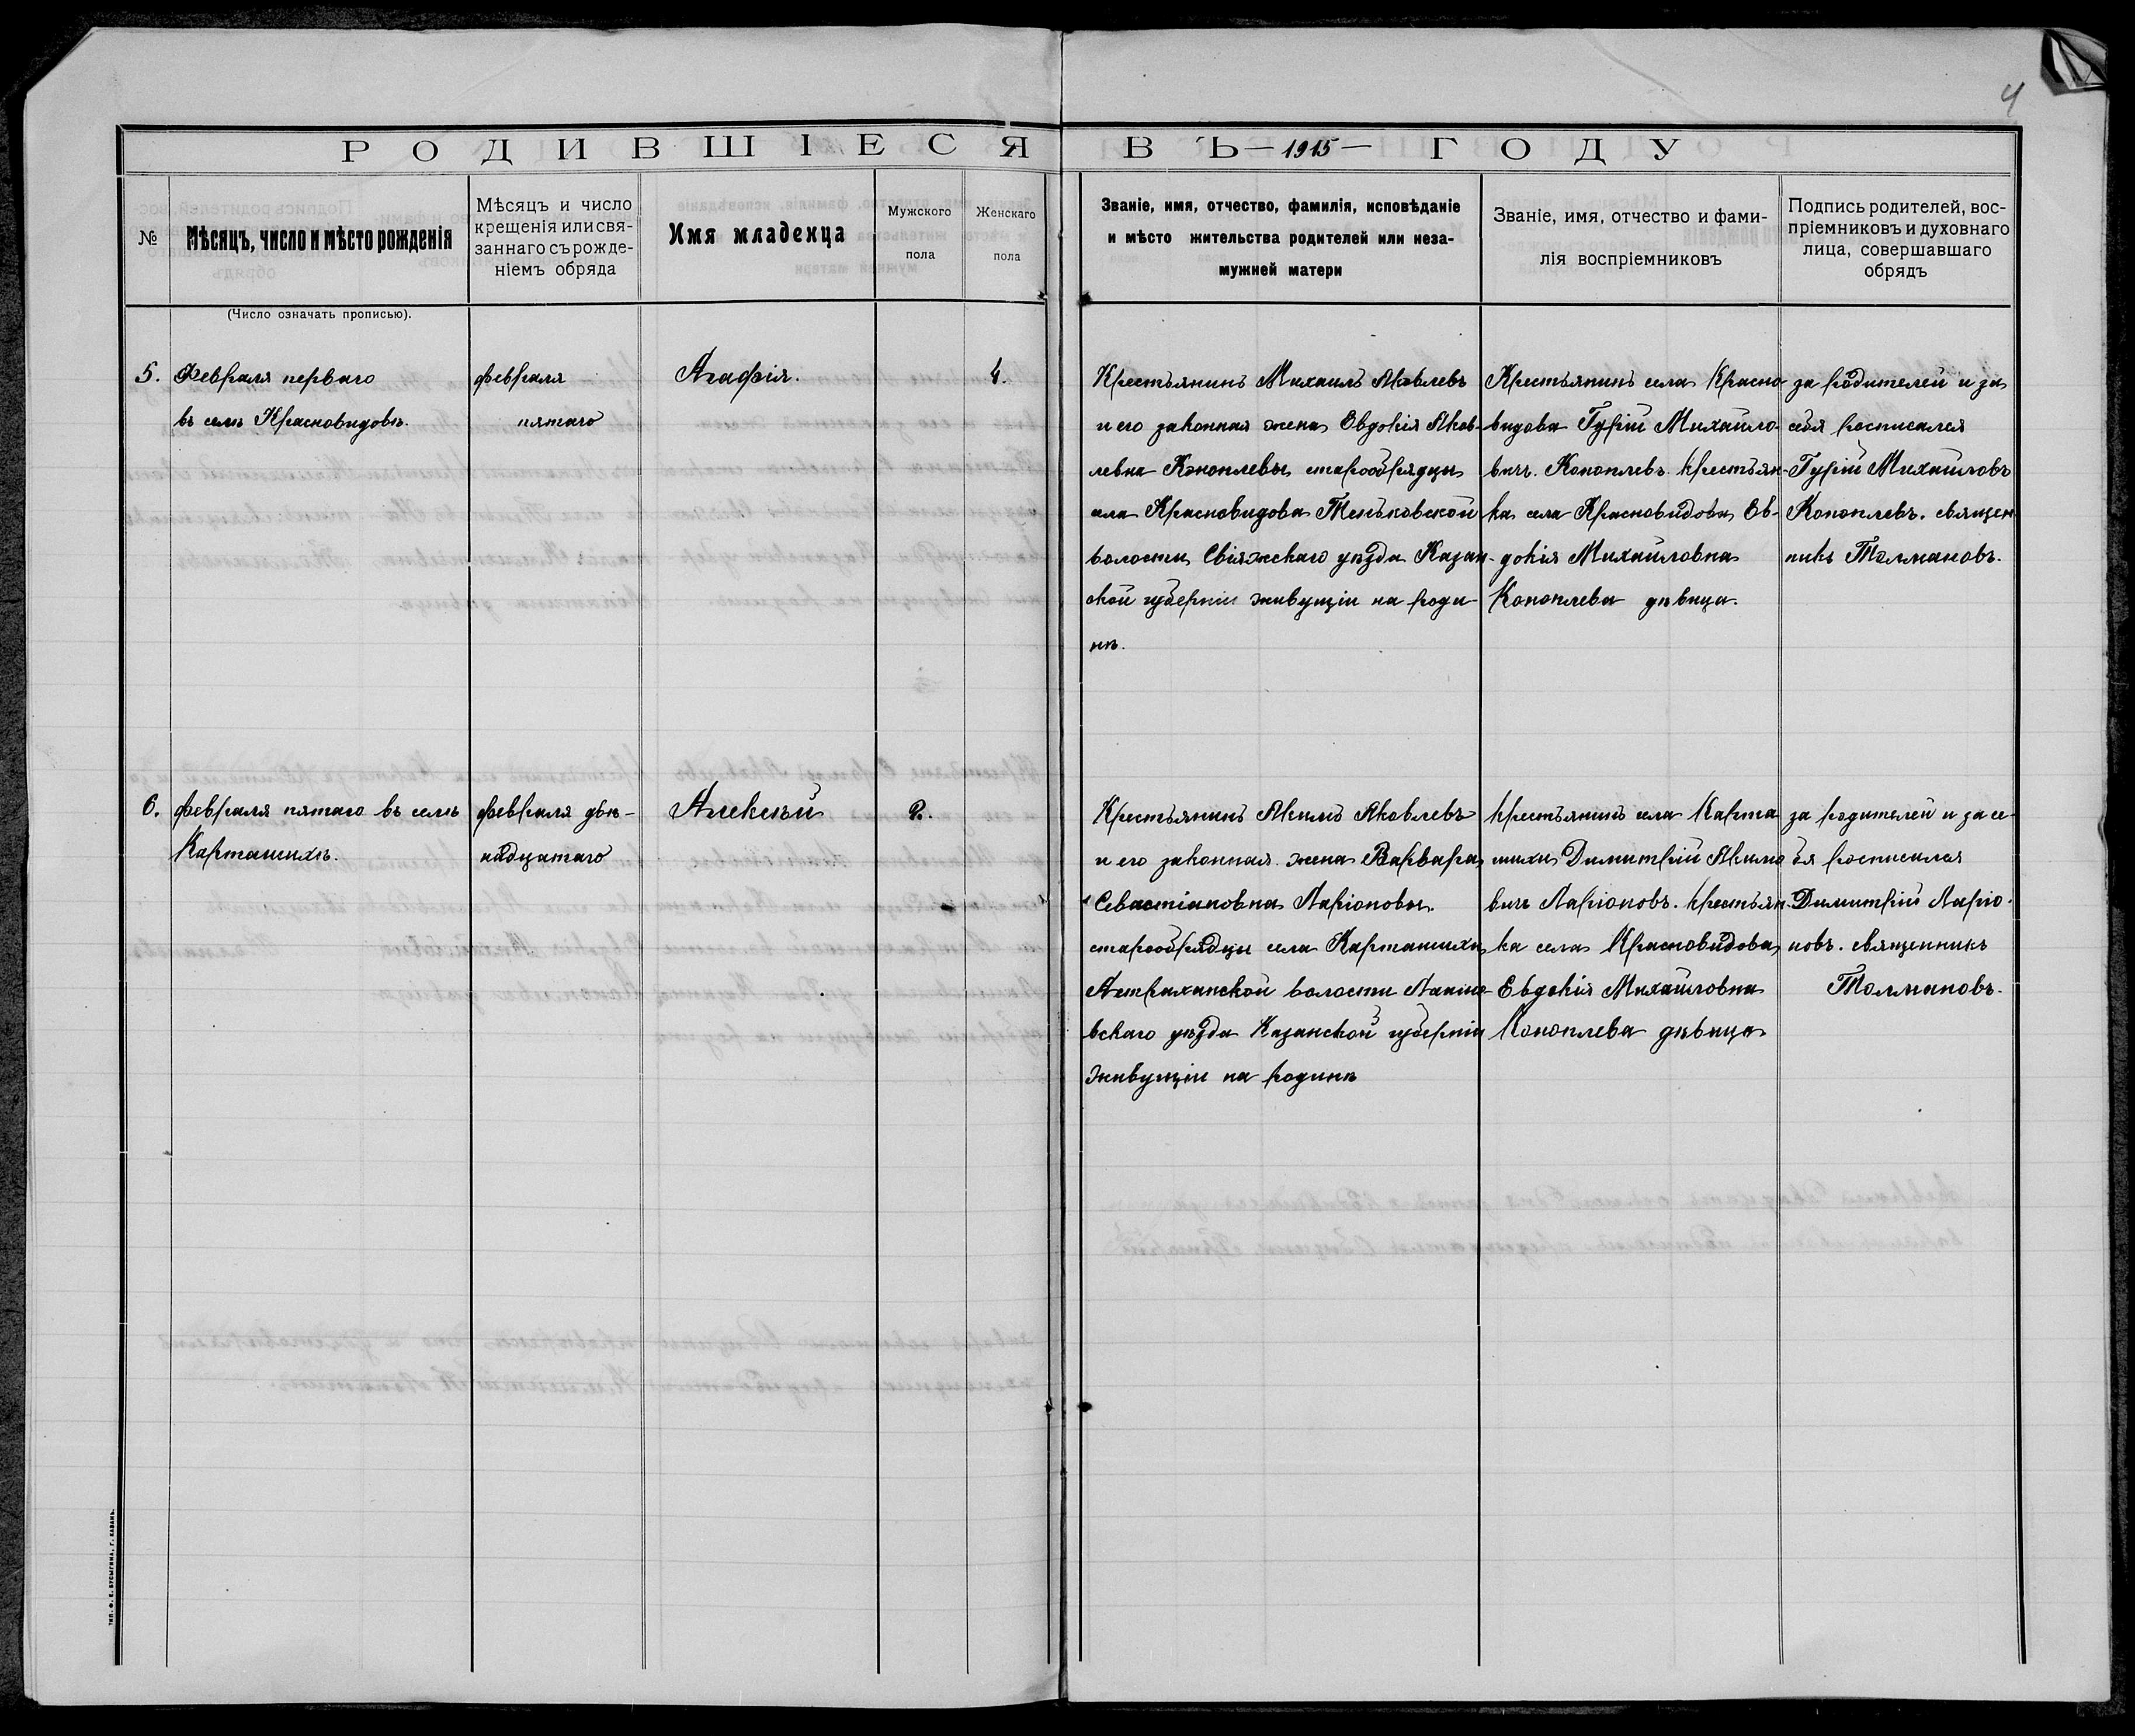 4
РОДИВШІЕСЯ ВЪ —1915— ГОДУ
№
Мѣсяцъ, число и мѣсто рожденія
Мѣсяцъ и число
крещенія или свя-
заннаго съ рожде-
ніемъ обряда
Имя младенца
Мужского
пола
Женскаго
пола
Званіе, имя, отчество, фамилія, исповѣданіе
и мѣсто жительства родителей или неза-
мужней матери
Званіе, имя, отчество и фами-
лія воспріемниковъ
Подпись родителей, вос-
пріемниковъ и духовнаго
лица, совершавшаго
обрядъ
(Число означать прописью).
5.
Февраля перваго
въ селѣ Красновидовѣ.
февраля
пятаго
Агафія.
4.
Крестьянинъ Михаилъ Яковлевъ
и его законная жена Евдокія Яков-
левна Коноплевы старообрядцы
села Красновидова Теньковской
волости Свіяжскаго уѣзда Казан-
ской губерніи живущіи на роди-
нѣ.
Крестьянинъ села Красно-
видова Гурій Михайло-
вичъ Коноплевъ. крестьян-
ка села Красновидова Ев-
докія Михайловна
Коноплева дѣвица.
за родителей и за
себя росписался
Гурій Михайловъ
Коноплевъ. священ
никъ Толмановъ.
6.
февраля пятаго въ селѣ
Карташихѣ.
февраля двѣ-
надцатаго
Алексѣй
2.
Крестьянинъ Акимъ Яковлевъ
и его законная жена Варвара
Севастіановна Ларіоновы.
старообрядцы села Карташихи
Астраханской волости Лаише-
вскаго уѣзда Казанской губерніи
живущіи на родинѣ
крестьянинъ села Карта
шихи Димитрій Акимо
вичъ Ларіоновъ. крестьян-
ка села Красновидова
Евдокія Михайловна
Коноплева дѣвица
за родителей и за се-
бя росписался
Димитрій Ларіо-
новъ. священникъ
Толмановъ.
ТИП. Ф. Е. БУСЫГИНА, Г. КАЗАНЬ.